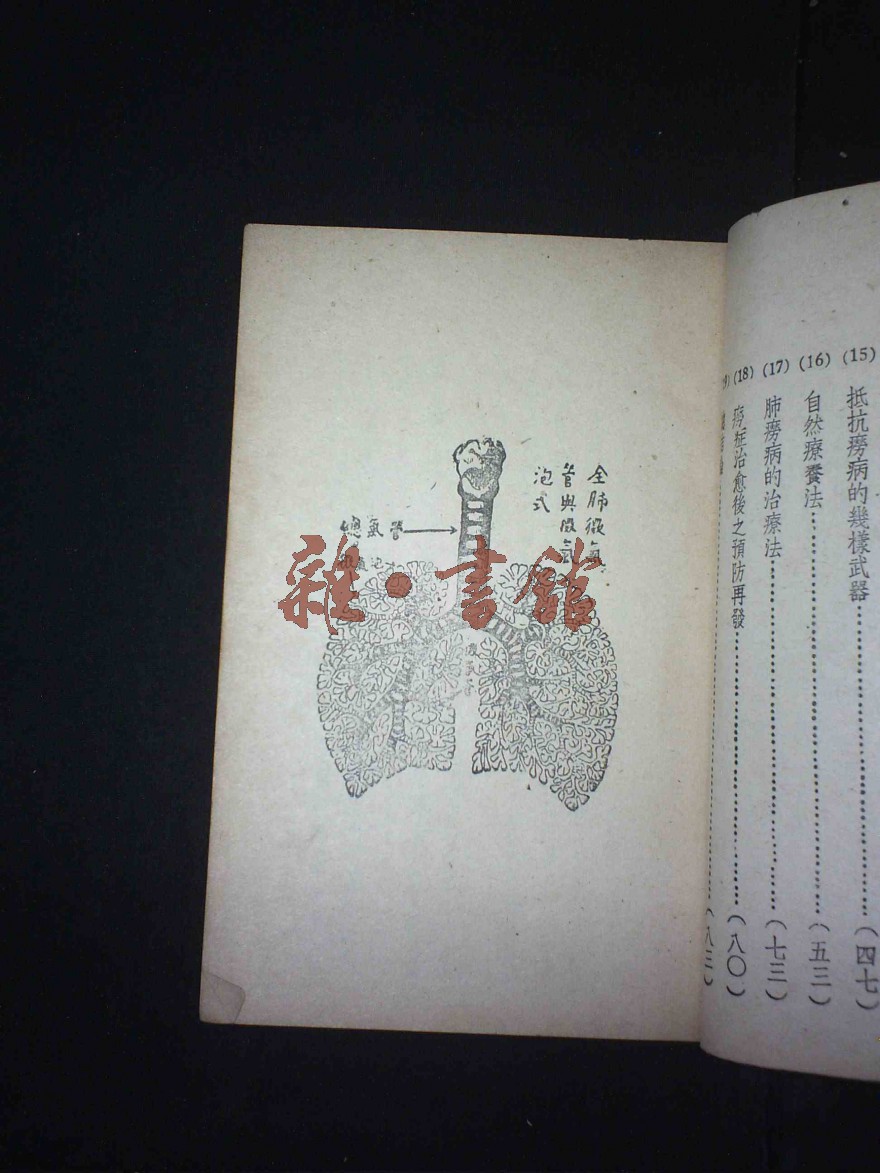 (15) 抵抗癆病的幾樣武器………(四七)
(16) 自然療養法………(五三)
(17) 肺癆病的治療法………(七三)
(18) 癆症治愈後之預防再發………(八〇)
(八三)
全肺微氣
管與微氣
泡式
總氣管
雜·書館